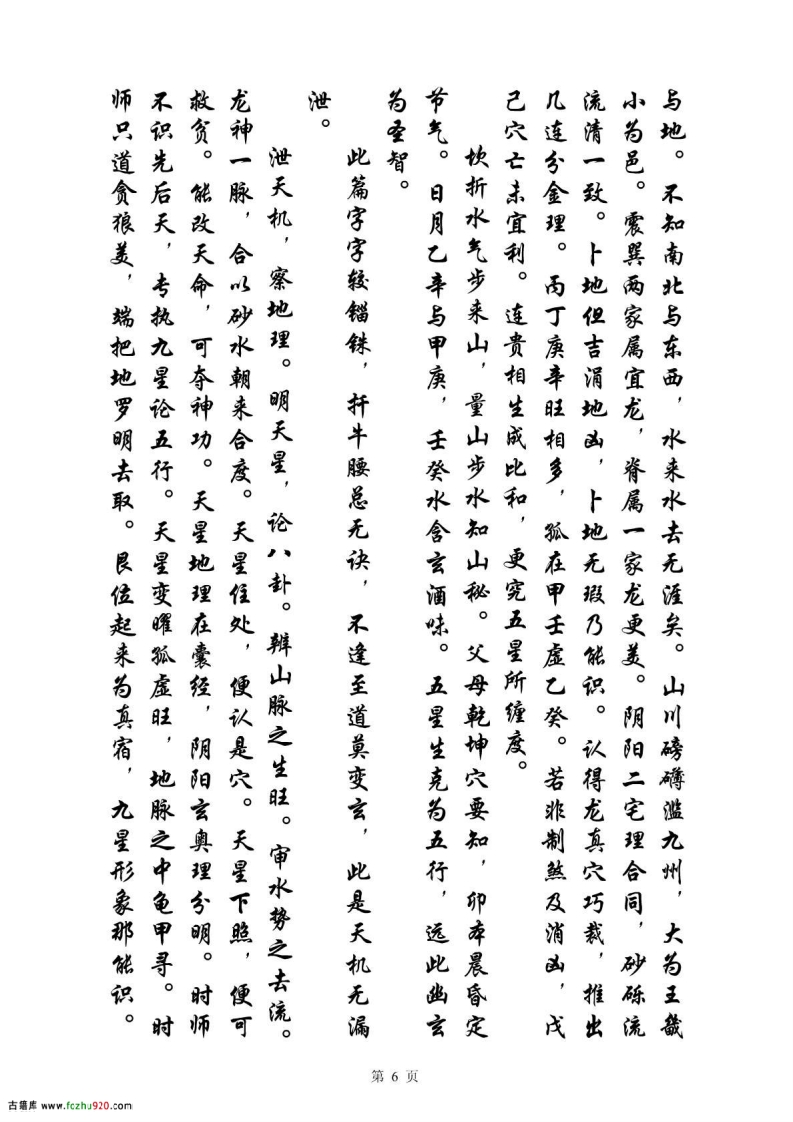 与地。不知南北与东西，水来水去无涯矣。山川磅礴滥九州，大为王畿
小为邑。震巽两家属宜龙，脊属一家龙更美。阴阳二宅理合同，砂砾流
流清一致。卜地但吉涓地凶，卜地无瑕乃能识。认得龙真穴巧裁，推出
几连分金理。丙丁庚辛旺相多，孤在甲壬虚乙癸。若非制煞及消凶，戊
己穴亡未宜利。连贵相生成比和，更究五星所缠度。
坎折水气步来山，量山步水知山秘。父母乾坤穴要知，卯本晨昏定
节气。日月乙辛与甲庚，壬癸水含玄酒味。五星生克为五行，远此幽玄
为圣智。
此篇字字较锱铢，扦牛腰总无诀，不逢至道莫变玄，此是天机无漏
泄。
泄天机，察地理。明天星，论八卦。辨山脉之生旺。审水势之去流。
龙神一脉，合以砂水朝来合度。天星住处，便认是穴。天星下照，便可
救贫。能改天命，可夺神功。天星地理在囊经，阴阳玄奥理分明。时师
不识先后天，专执九星论五行。天星变曜孤虚旺，地脉之中龟甲寻。时
师只道贪狼美，端把地罗明去取。艮位起来为真宿，九星形象那能识。
第 6 页
古籍库 www.fczhu920.com